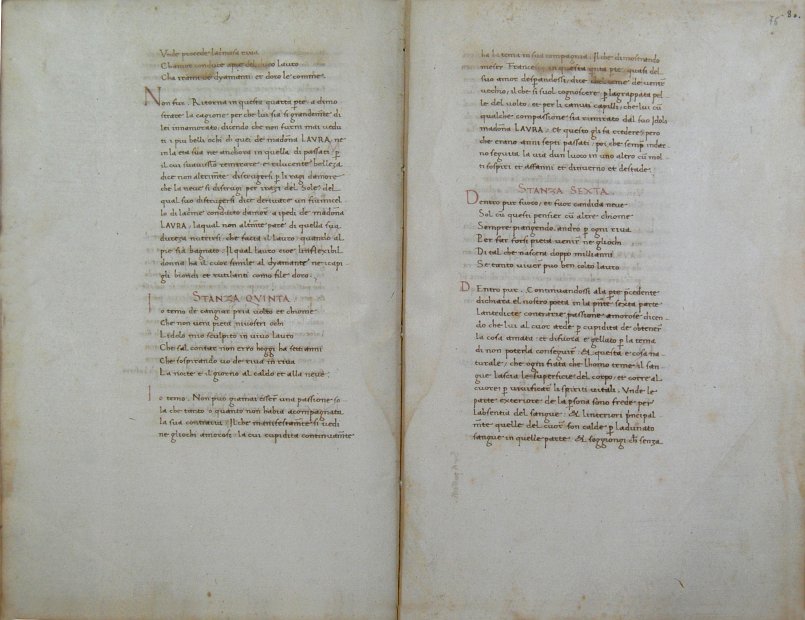 Unde procede lacrimosa riva
Ch amor conduce apie del duro lauro
Cha rami de dyamanti et doro le comme.
Non fur. Ritorna in questa quarta pte a dimo
strare la cagione per che lui sia si grandemente di
lei innamorato, dicendo che non furon mai vedu
ti i piu belli ochi di quei de madona LAVRA, ne
in la eta sua ne anchora in quella di passati: p
il cui suavissimo e rilucente bellezza
dice non altrimte distrugersi p li ragi damore
che la neve si distrugi per i ragi del Sole del
qual suo distrugersi dice derivare un fiumicel
lo di lacrime conducto damor a i pedi de madona
LAVRA, laqual non altrimte pare di quella sua
dureza nutrirsi che facia il lauro, quando al
pie sia bagnato. Il qual lauro cioe linflexibil
donna ha il cuor simile al dyamante ne i capi
gli biondi et rutilanti como file doro.
STANZA QVINTA
Io temo de cangiar pria volto et chiome
Che non vera pieta mi mostri ochi
Lidolo mio sculpito in vivo lauro
Che sal contar non erro hoggi ha setti anni
Che sospirando vo de riva in riva
La notte e il giorno al caldo et alla neve.
Io temo. Non puo giamai esser una passione so
la che tanto o quanto non habia acompagnata
la sua contraria: Il che manifestamente si vedi
ne gli ochi amorosi: la cui cupidita continuamente
76 80.
ha la tema in sua compagnia. Il che dimostrando
meser Francesco in questa quita pte quasi del
suo amor despandossi, dice che teme de venir
vechio, il che si suol cognoscere p la grappata pel
le del volto, et per li canuti capilli, che lui cu
qualche compassione sia rimirato dal suo Idolo
madona LAVRA: et questo gli fa credere, pero
che erano anni septi passati, poi che semp indar
no seguita la via dun luoco in uno altro cu mol
ti sospiri et affanni et di inverno et destade.
STANZA SEXTA
Dentro pur fuoco, et fuor candida neve
Sol cu questi pensier cu altre chiome
Sempre piangendo andro p ogni riva
Per far forsi pieta venir ne gliochi
Di tal che nascera doppo milli anni
Se tanto viver puo ben colto lauro
DEntro pur. Continuandossi ala pte pcedente
dichiara el nostro poeta in la pnte sexta parte
Lantedicte contrarie passione amorose dicen
do che lui al cuor arde p cupidita de obtener
la cosa amata et difuora e gellato p la tema
di non poterla conseguir. Et questa e cosa na
turale, che ogni fiata che lhomo teme il san
gue lascia le superficie del corpo, et corre al
cuore: p vivificare li spiriti vitali. Unde le
parte exteriore de la psona sono frede per
labsentia del sangue: Et linteriori principal
mte quelle del cuor son calde p ladunato
sangue in quelle parte. Et soggiongi ch senza